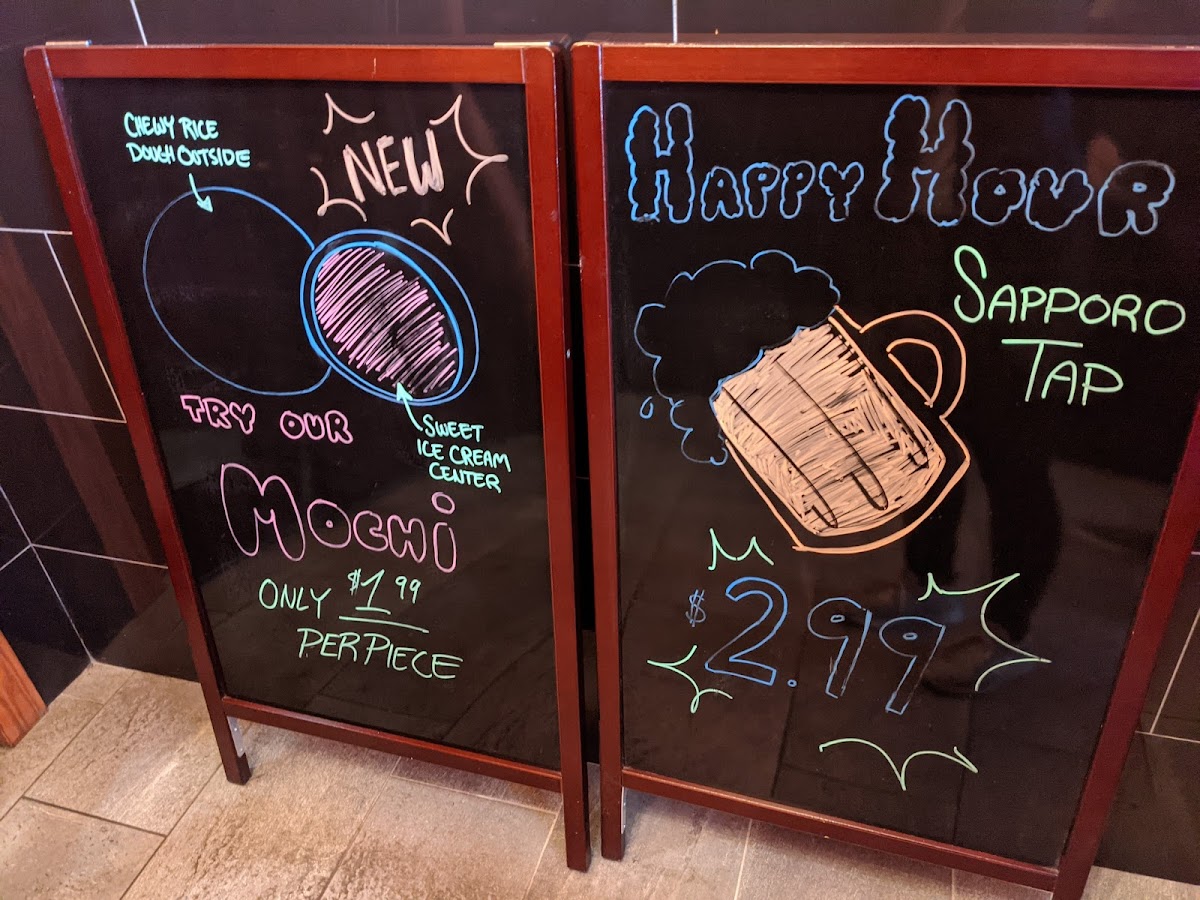 CHEWY RICE
DOUGH OUTSIDE
NEW
TRY OUR
SWEET
ICE CREAM
CENTER
MOCHi
ONLY $1.99
PER PIECE
HAPPY HOUR
SAPPORO
TAP
$2.99